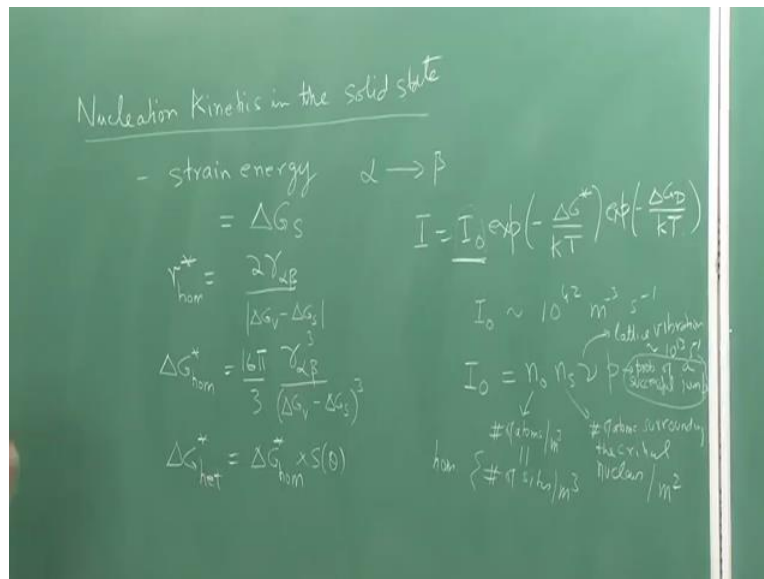 Nucleation Kinetics in the solid state
- strain energy α → β
= ΔG_S
r*_hom = 2γ_αβ / |ΔG_V - ΔG_S|
ΔG*_hom = 16π/3 γ_αβ^3 / (ΔG_V - ΔG_S)^3
ΔG*_het = ΔG*_hom × S(θ)
I = I_0 exp(-ΔG*/kT) exp(-ΔG_D/kT)
I_0 ~ 10^42 m^-3 s^-1
lattice vibration
~ 10^13 s^-1
I_0 = n_0 n_s ν p → prob of a
successful jump
# of atoms/m^3
||
hom { # of sites/m^3
# of atoms surrounding
the critical
nucleus / m^2